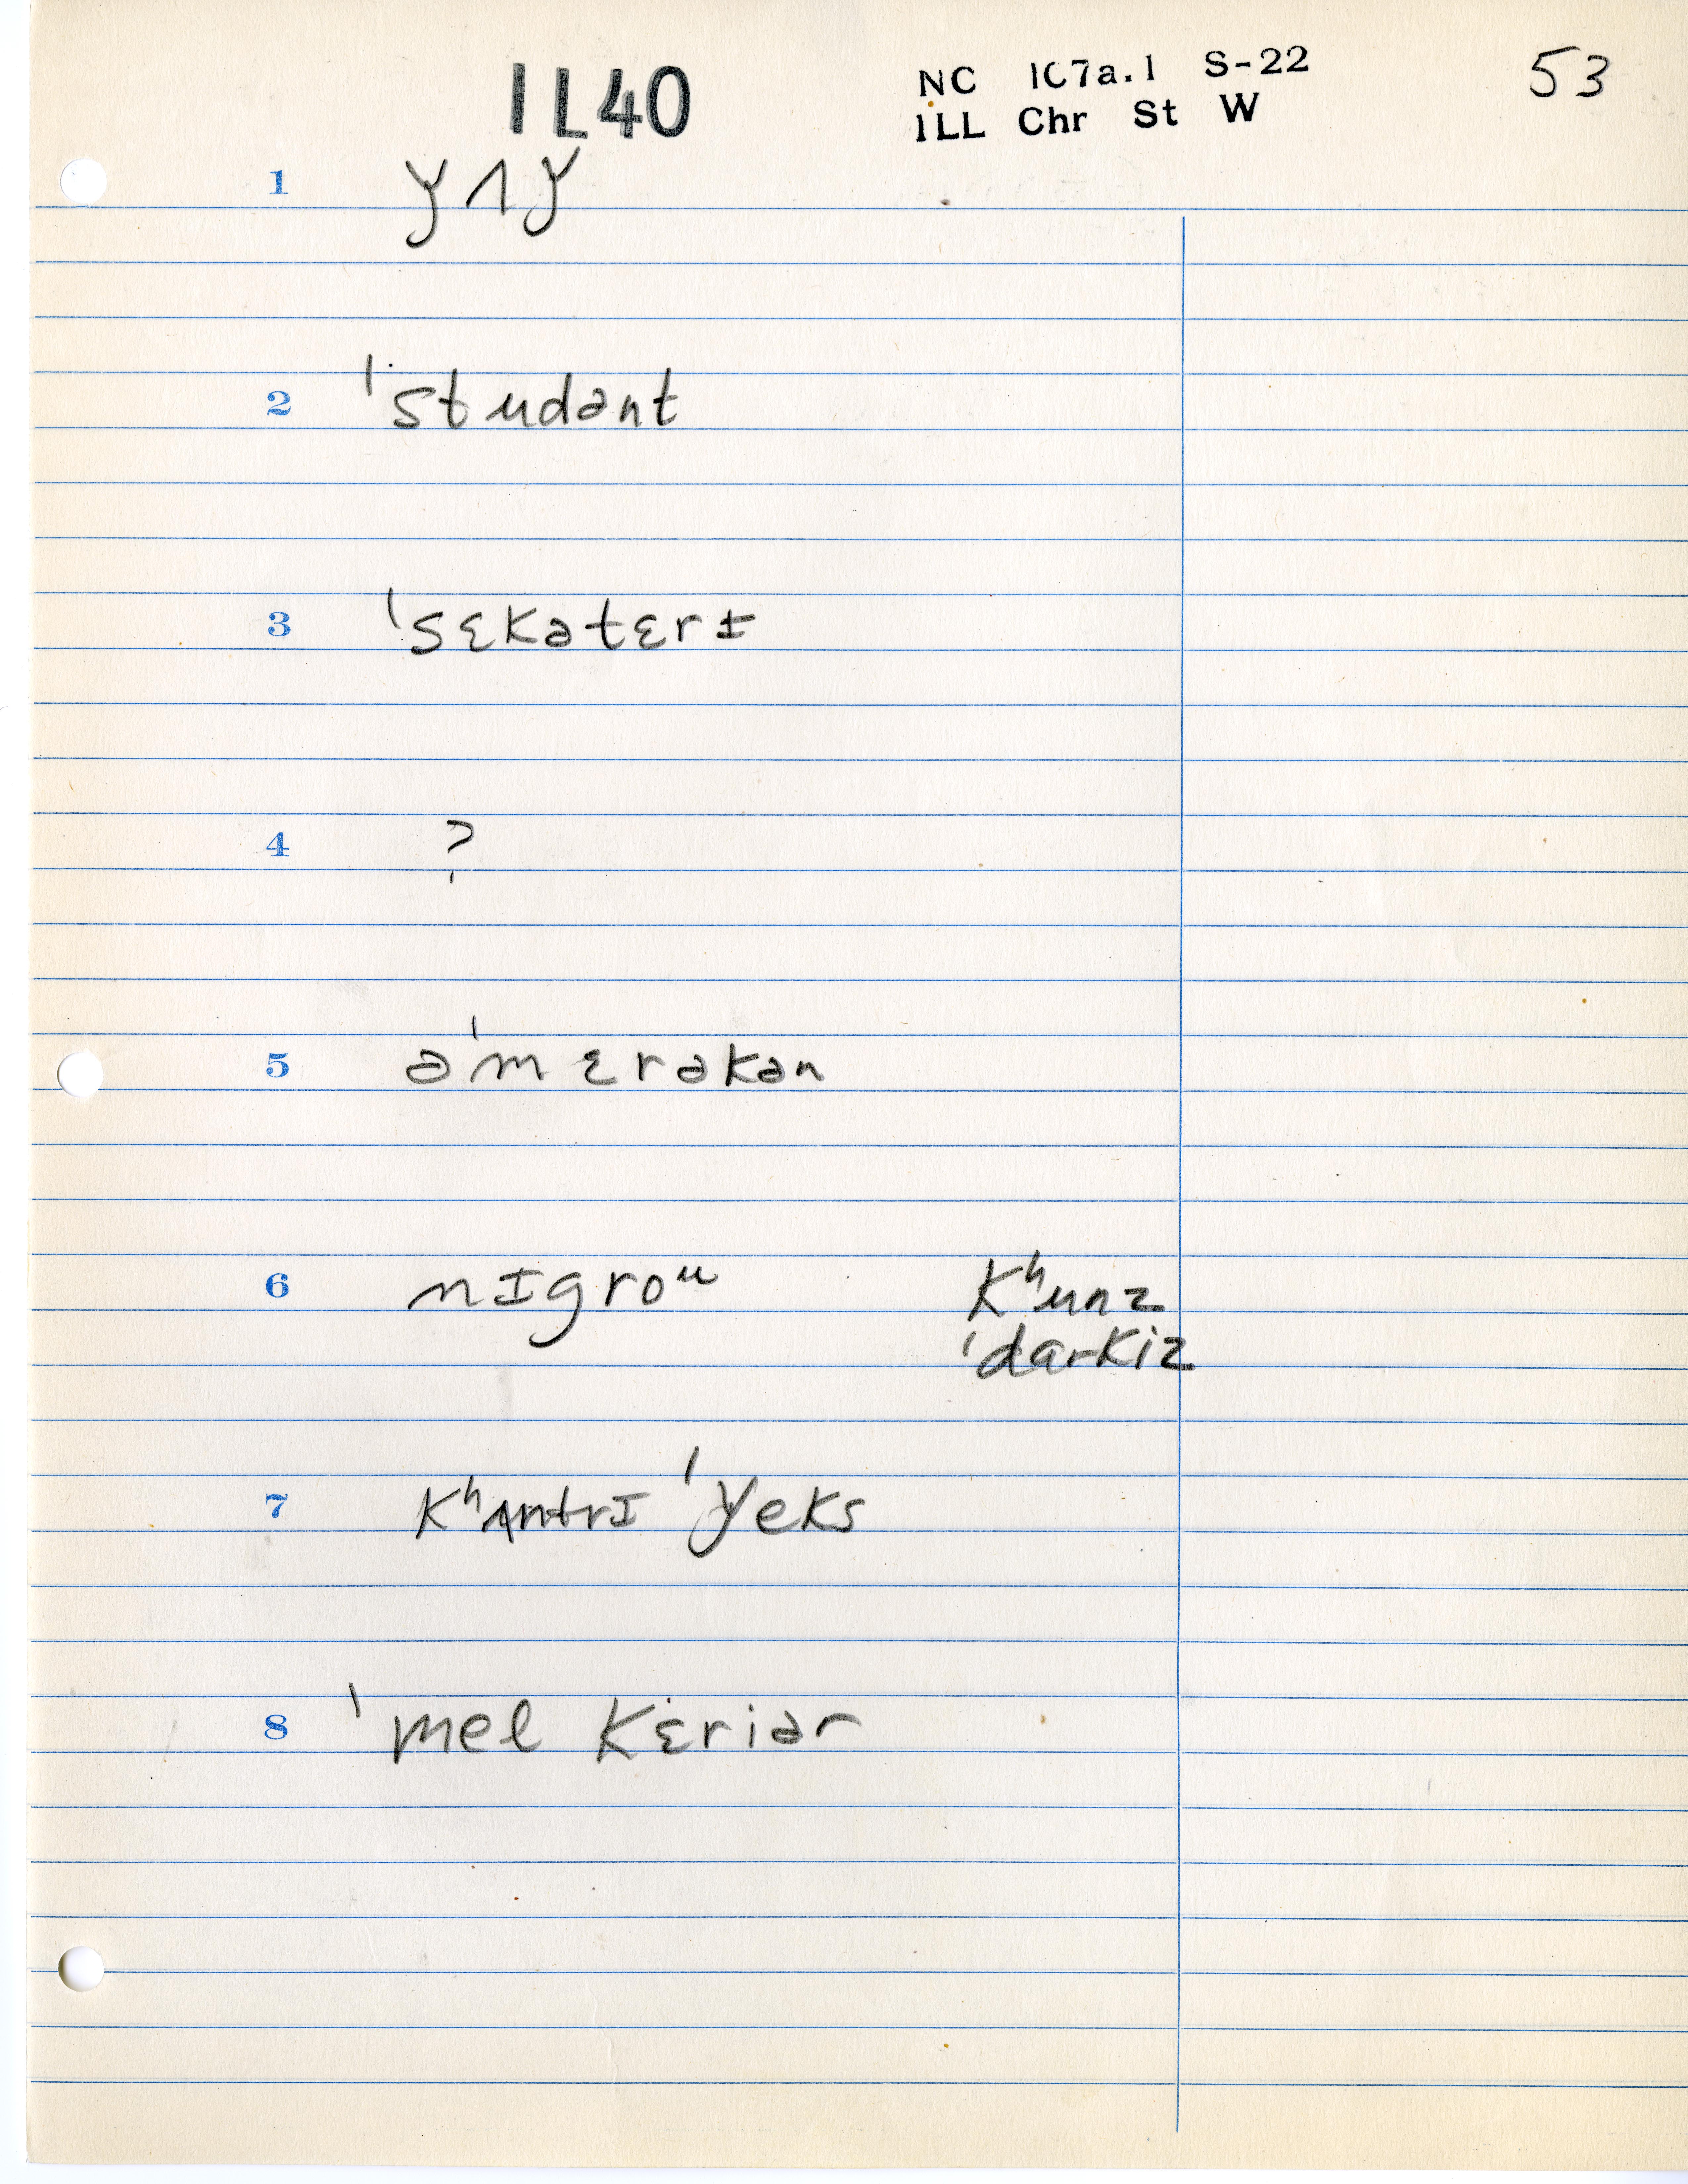 IL40
NC 107a.1 S-22 53
ILL Chr St W
1 yʌy
2 ˈstudənt
3 ˈsɛkətɛrɪ
4 ?
5 əˈmɛrəkən
6 nɪgroᵘ kʰunz
ˈdarkiz
7 kʰʌntrɪ ˈyeks
8 ˈmel kɛriər